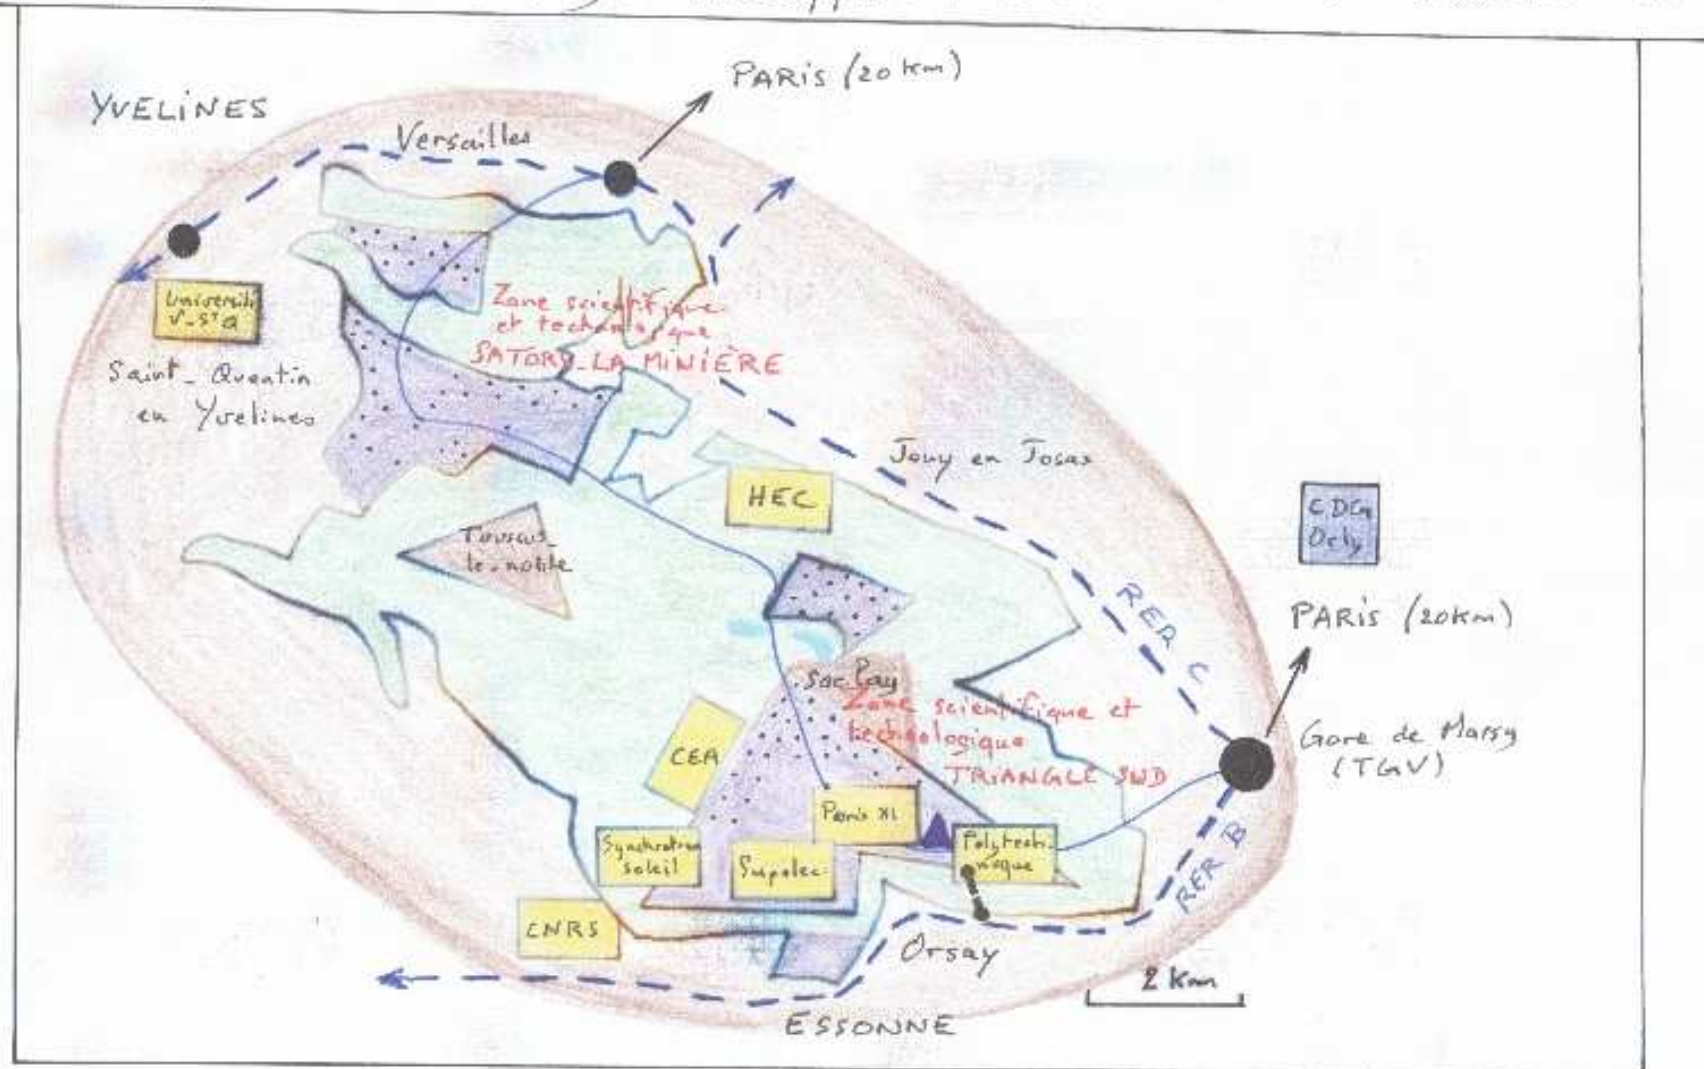 YVELINES
PARIS (20 km)
Versailles
Université
V-St Q
Saint-Quentin
en Yvelines
Zone scientifique
et technologique
SATORY-LA MINIÈRE
Jouy en Josas
HEC
Toussus-
le-noble
CDG
Orly
RER C
PARIS (20km)
Saclay
Zone scientifique et
technologique
TRIANGLE SUD
Gare de Massy
(TGV)
CEA
Paris XI
Synchrotron
soleil
Supelec
Polytech-
nique
RER B
CNRS
Orsay
2 Km
ESSONNE